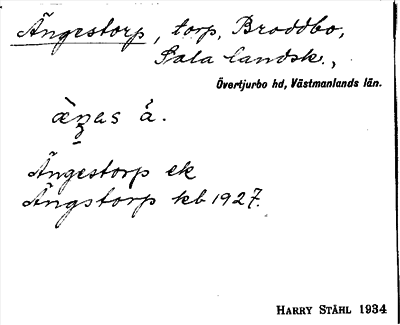 Ängestorp, torp, Broddbo,
Sala landsk.,
Övertjurbo hd, Västmanlands län.
æ̀ŋas å.
Ängestorp ek
Ängstorp kb 1927.
HARRY STÅHL 1934